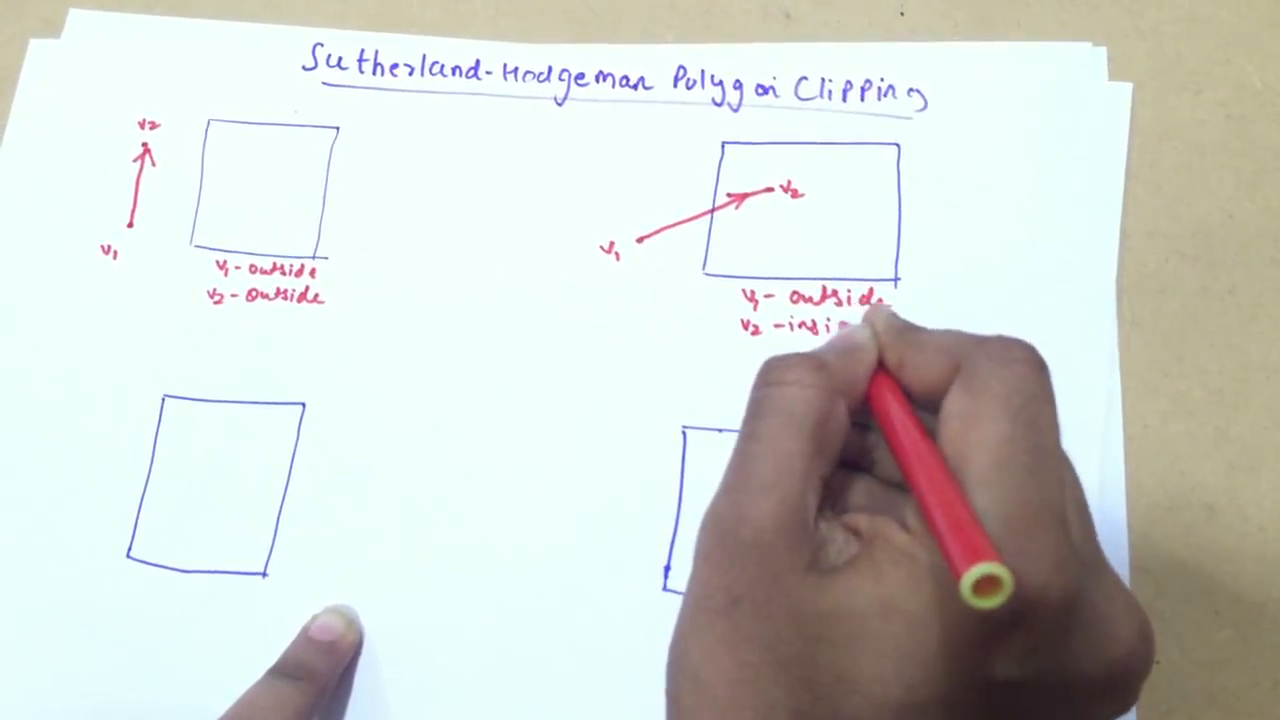 Sutherland-Hodgeman Polygon Clipping
v2
v1
v1 - outside
v2 - outside
v2
v1
v1 - outside
v2 - insi